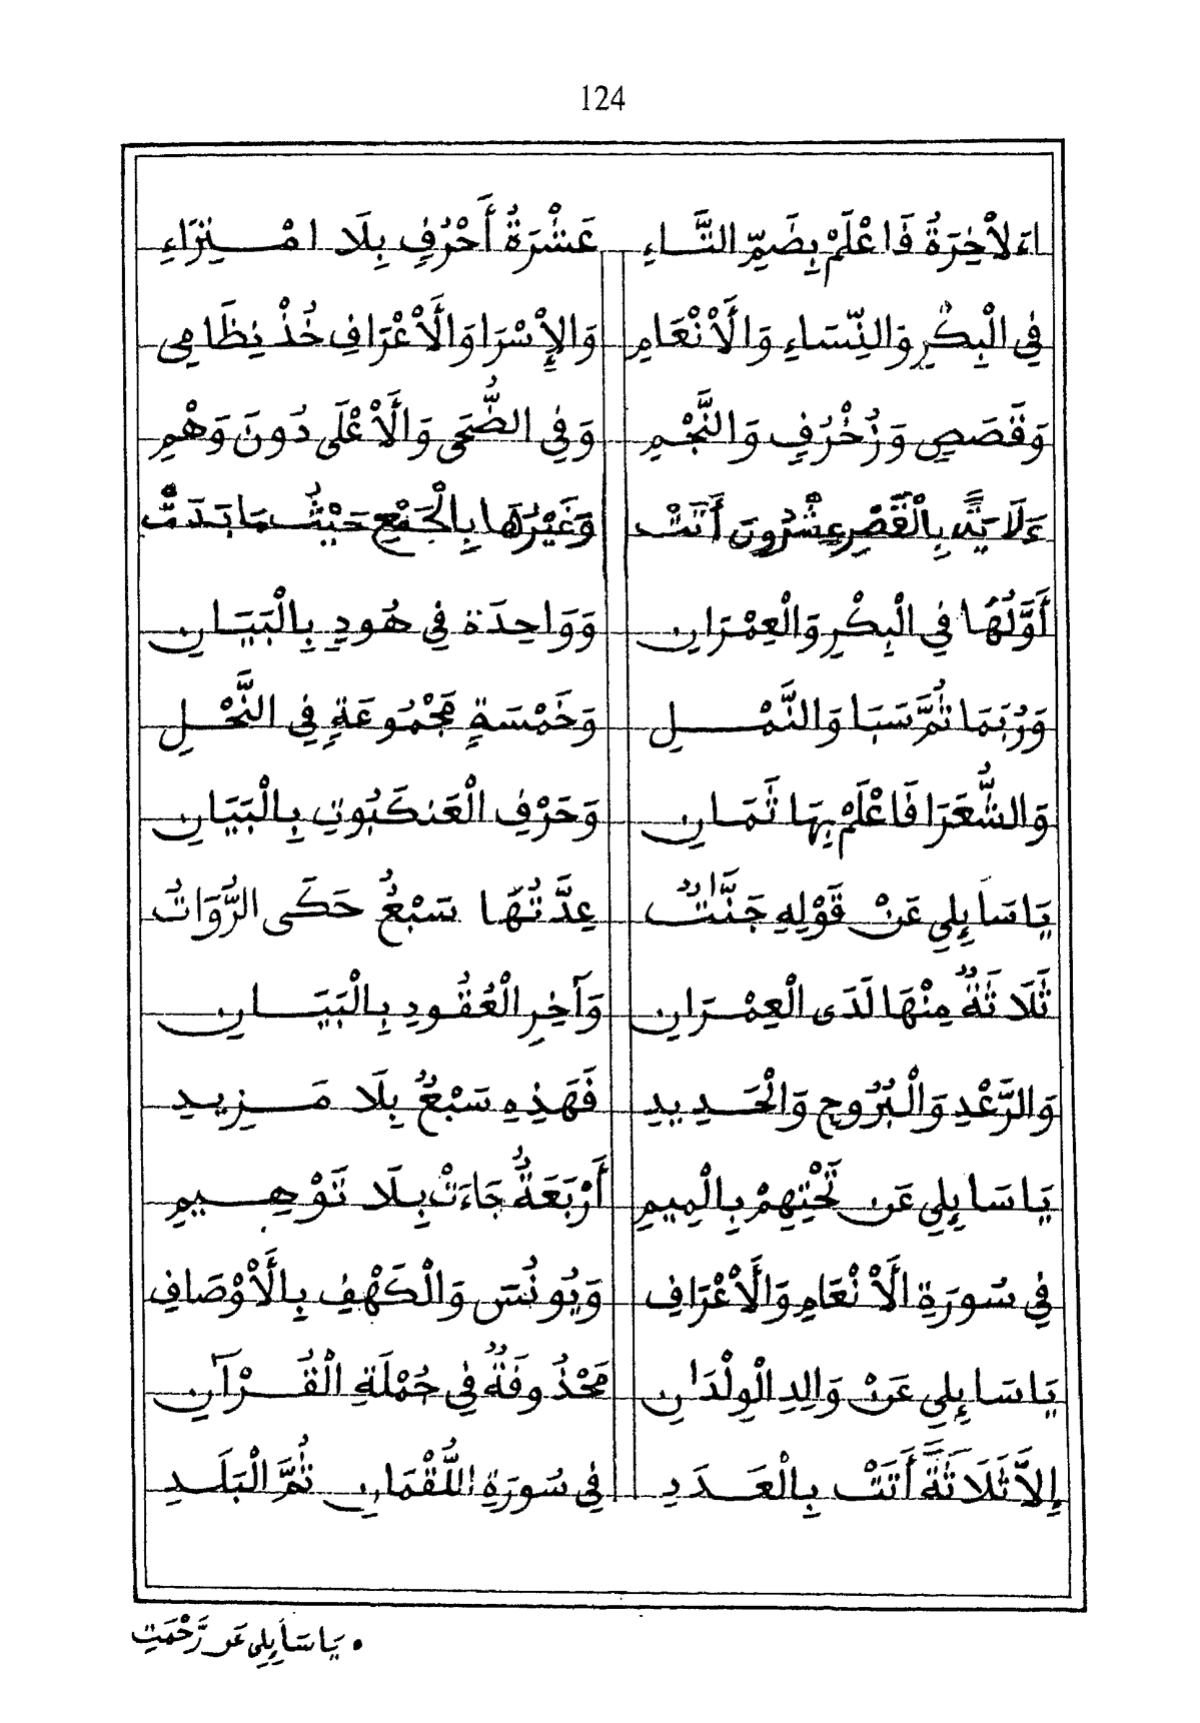 124
اَءَلْأَخِرَةُ فَاعْلَمْ بِضَمِّ التَّاءِ عَشْرَةُ أَحْرُفٍ بِلَا امْتِرَاءِ
فِي الْبِكْرِ وَالنِّسَاءِ وَالْأَنْعَامِ وَالْإِسْرَا وَالْأَعْرَافِ خُذْ نِظَامِي
وَقَصَصٍ وَزُخْرُفٍ وَالنَّجْمِ وَفِي الضُّحَى وَالْأَعْلَى دُونَ وَهْمِ
ءَلَايَةً بِالْقَصْرِ عِشْرُونَ أَتَتْ وَغَيْرُهَا بِالْجَمْعِ حَيْثُ مَا بَدَتْ
أَوَّلُهَا فِي الْبِكْرِ وَالْعِمْرَانِ وَوَاحِدَة فِي هُودٍ بِالْبَيَانِ
وَرُبَمَا ثُمَّ سَبَا وَالنَّمْلِ وَخَمْسَةٍ مَجْمُوعَةٍ فِي النَّحْلِ
وَالشُّعَرَا فَاعْلَمْ بِهَا ثَمَانِ وَحَرْفِ الْعَنكَبُوتِ بِالْبَيَانِ
يَاسَاَيِلِي عَنْ قَوْلِهِ جَنَّاتٌ عِدَّتُهَا سَبْعُ حَكَى الرُّوَاتُ
ثَلَاثَةٌ مِنْهَا لَدَى الْعِمْرَانِ وَآخِرِ الْعُقُودِ بِالْبَيَانِ
وَالرَّعْدِ وَالْبُرُوجِ وَالْحَدِيدِ فَهَذِهِ سَبْعٌ بِلَا مَزِيدِ
يَاسَايِلِي عَن تَحْتِهِمْ بِالْمِيمِ أَرْبَعَةٌ جَاءَتْ بِلَا تَوْهِيمِ
فِي سُورَةِ الْأَنْعَامِ وَالْأَعْرَافِ وَيُونُسَ وَالْكَهْفِ بِالْأَوْصَافِ
يَاسَايِلِي عَنْ وَالِدِ الْوِلْدَانِ مَحْذُوفَةٌ فِي جُمْلَةِ الْقُرْآنِ
إِلَّا ثَلَاثَةً أَتَتْ بِالْعَدَدِ فِي سُورَةِ اللُّقْمَانِ ثُمَّ الْبَلَدِ
• يَاسَاَيِلِي عَن رَّحْمَتِ